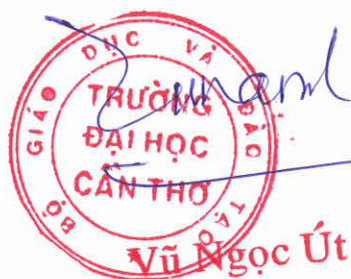 BỘ GIÁO DỤC VÀ ĐÀO TẠO
TRƯỜNG
ĐẠI HỌC
CẦN THƠ
Vũ Ngọc Út